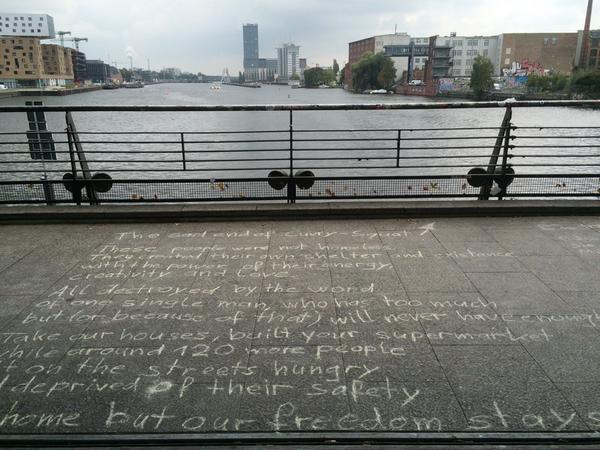 The sad end of Cuvry Squat
These people were not homeless
They created their own shelter and existence
with the power of their energy,
creativity and love
All destroyed by the word
of one single man who has too much
but (or because of that) will never have enough
Take our houses, built your supermarket
while around 120 more people
t on the streets hungry
deprived of their safety
home but our freedom stays